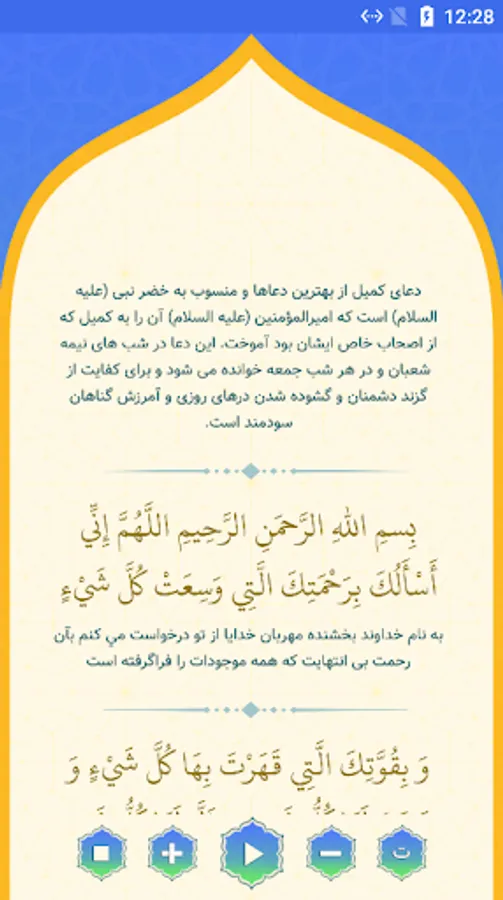 12:28
دعای کمیل از بهترین دعاها و منسوب به خضر نبی (علیه
السلام) است که امیرالمؤمنین (علیه السلام) آن را به کمیل که
از اصحاب خاص ایشان بود آموخت. این دعا در شب های نیمه
شعبان و در هر شب جمعه خوانده می شود و برای کفایت از
گزند دشمنان و گشوده شدن درهای روزی و آمرزش گناهان
سودمند است.
بِسمِ اللهِ الرَّحمَنِ الرَّحِيمِ اللَّهُمَّ إِنِّي
أَسْأَلُكَ بِرَحْمَتِكَ الَّتِي وَسِعَتْ كُلَّ شَيْءٍ
به نام خداوند بخشنده مهربان خدایا از تو درخواست مي کنم بآن
رحمت بی انتهایت که همه موجودات را فراگرفته است
وَ بِقُوَّتِكَ الَّتِي قَهَرْتَ بِهَا كُلَّ شَيْءٍ وَ
ت